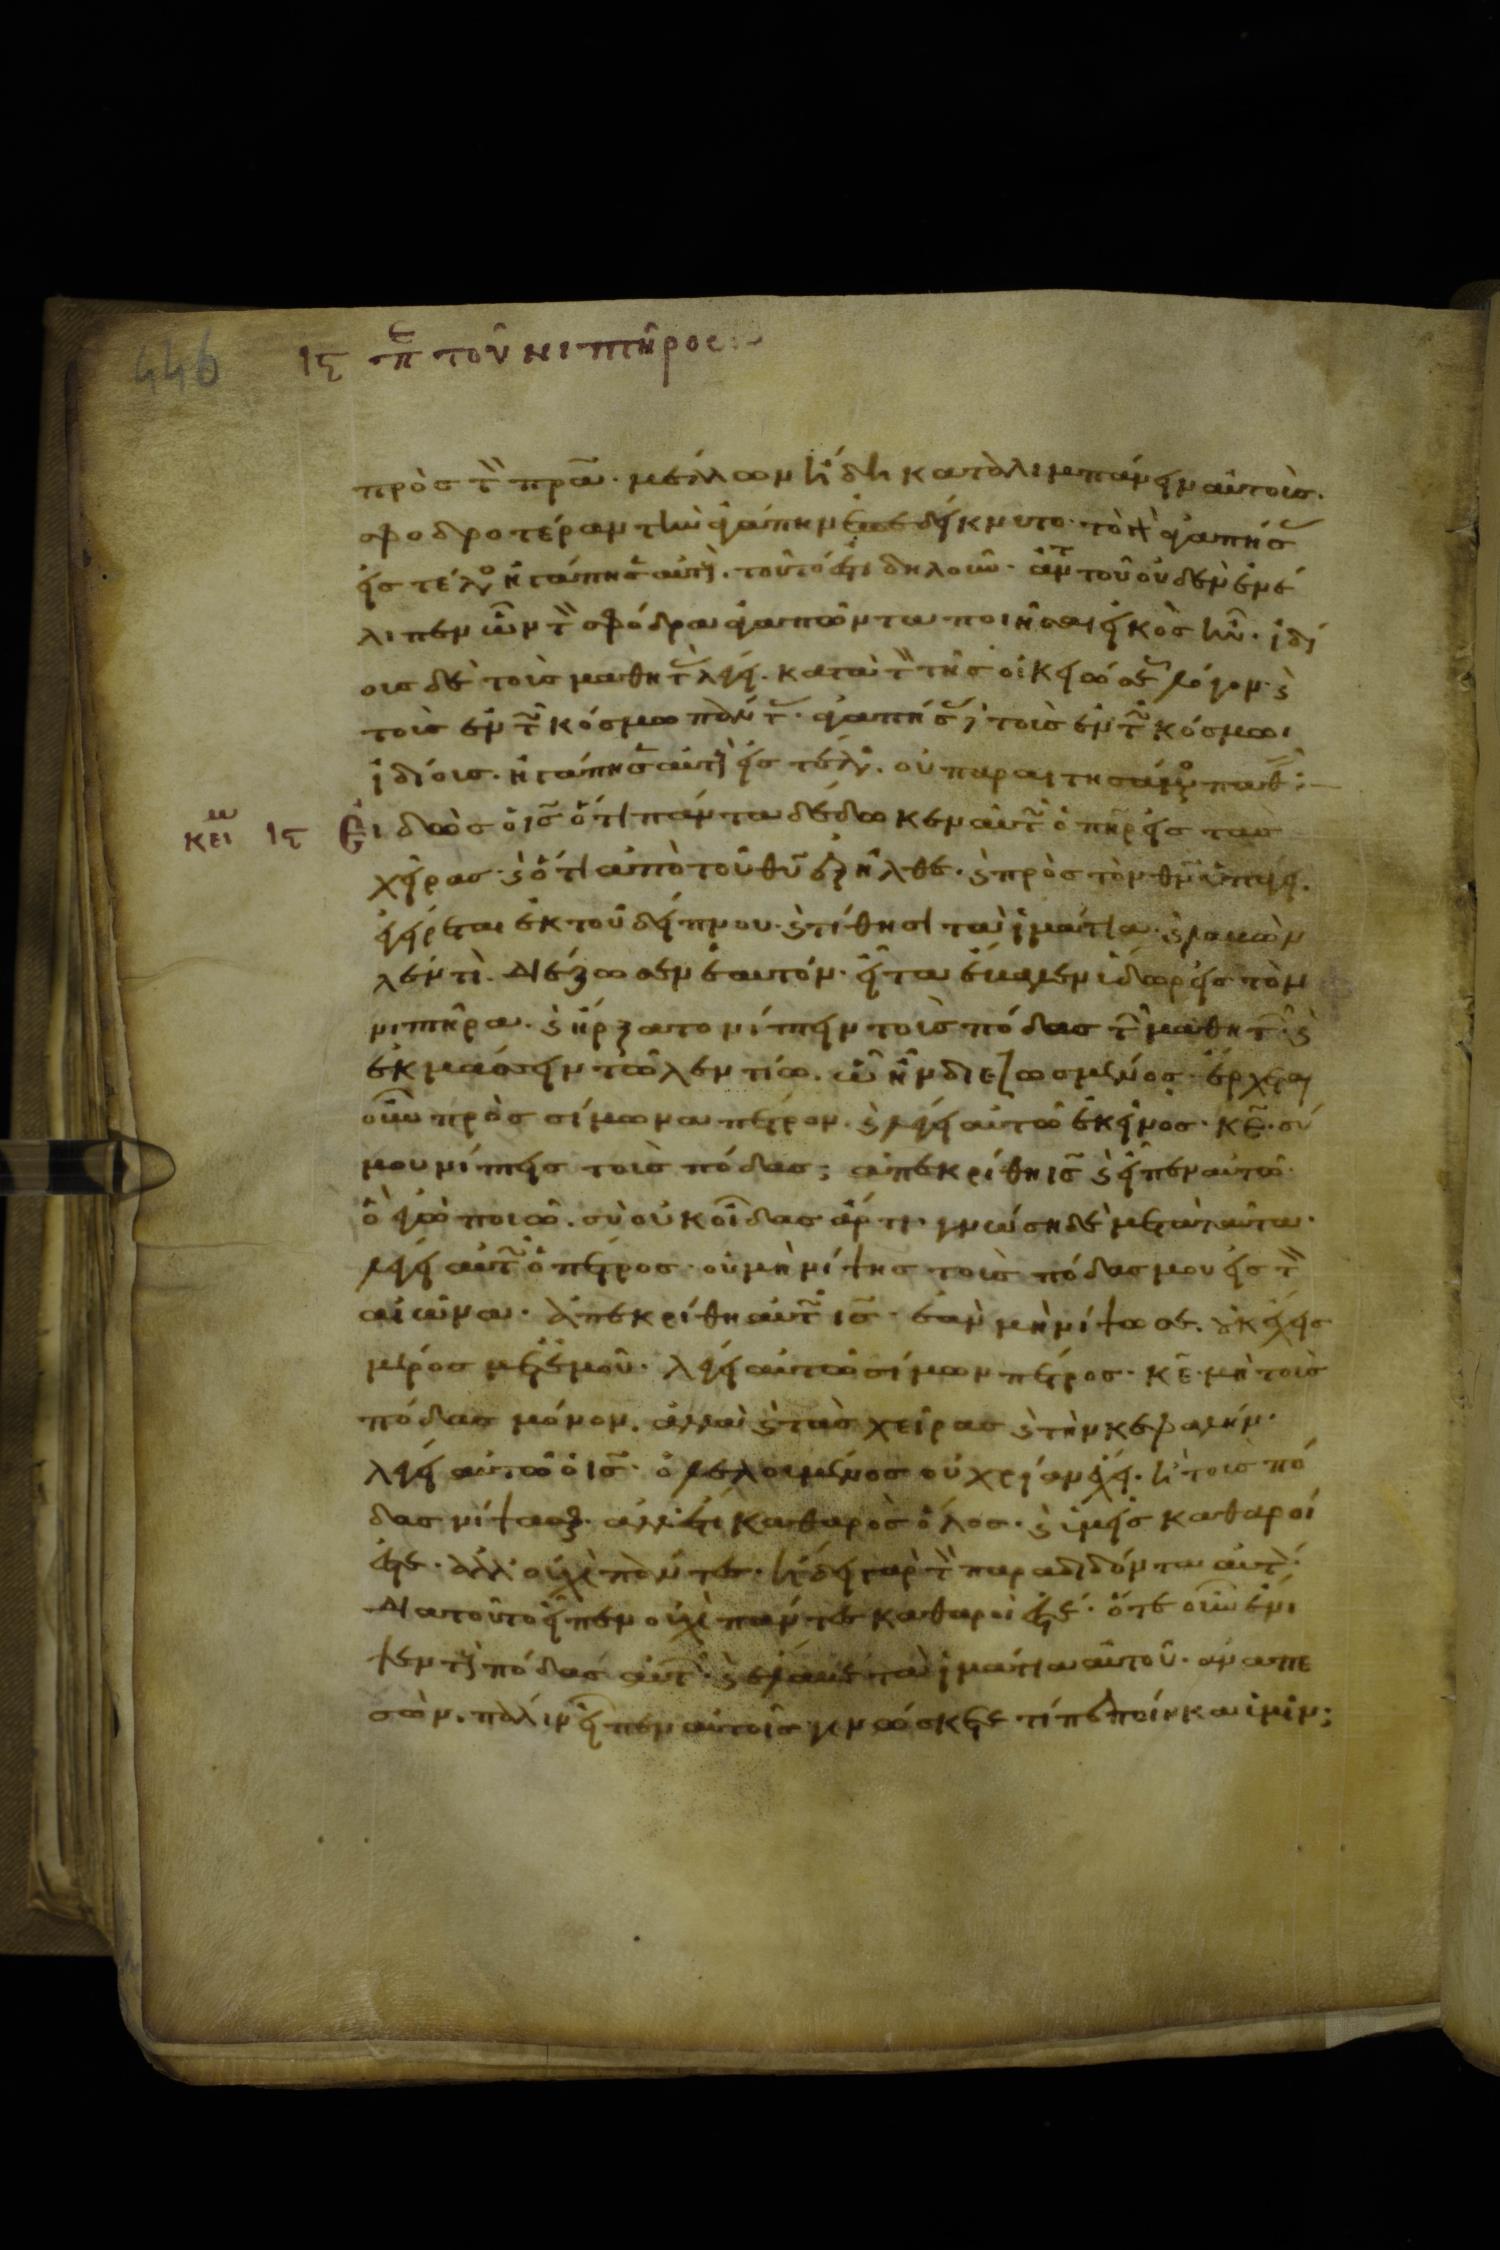 446
ιϛ πε τοῦ νιπτῆρος
πρὸς τὸν πρα. μέλλων ἤδη καταλιμπάνειν αὐτοὺς.
σφοδροτέραν τὴν ἀγάπην ἐπεδείκνυτο. τὸ γὰρ ἀγαπήσας
εἰς τέλος ἠγάπησεν αὐτούς. τοῦτό ἐστι δηλοῦν. ἀντὶ τοῦ οὐδὲν ἐνέ
λιπεν ὧν τὸν σφόδρα ἀγαπῶντα ποιῆσαι εἰκὸς ἦν. ἰδί
ους δὲ τοὺς μαθητὰς λέγει. κατὰ τὸν τῆς οἰκειώσεως λόγον. καὶ
τοὺς ἐν τῷ κόσμω πάντας. ἀγαπήσας τοὺς ἐν τῷ κόσμωι
ἰδίους. ἠγάπησεν αὐτοὺς εἰς τέλος. οὐ παραιτησάμενος παθεῖν
κει ιϛ Εἰδὼς ὁ ις ὅτι πάντα δέδωκεν αὐτῷ ὁ πηρ εἰς τας
χεῖρας. καὶ ὅτι ἀπὸ τοῦ θυ ἐξῆλθε. καὶ πρὸς τὸν θν ὑπάγει.
ἐγείρεται ἐκ τοῦ δείπνου. καὶ τίθησι τὰ ἱμάτια. καὶ λαβὼν
λέντι. διέζωσεν ἑαυτόν. εἶτα ἔβαλεν ὕδωρ εἰς τὸν
νιπτῆρα. καὶ ἤρξατο νίπτειν τοὺς πόδας τῶν μαθητῶν. καὶ
ἐκμάσσειν τῶ λεντίω. ὧ ἦν διεζωσμένος. ἔρχεται
οὖν πρὸς σίμωνα πέτρον. καὶ λέγει αὐτῶ ἐκεῖνος. κε. σύ
μου νίπτεις τοὺς πόδας; ἀπεκρίθη ις καὶ εἶπεν αὐτῶ.
ὃ ἐγὼ ποιῶ. σὺ οὐκ οἶδας ἄρτι. γνώση δὲ μετὰ ταῦτα.
λέγει αὐτῷ ὁ πέτρος. οὐ μὴ νίψης τοὺς πόδας μου εἰς τὸν
αἰῶνα. ἀπεκρίθη αὐτῷ ις. ἐὰν μὴ νίψω σε. οὐκ ἔχεις
μέρος μετ' ἐμοῦ. λέγει αὐτῶ σίμων πέτρος. κε. μὴ τοὺς
πόδας μόνον. ἀλλὰ καὶ τὰς χεῖρας καὶ τὴν κεφαλήν.
λέγει αὐτῶ ὁ ις. ὁ λελουμένος οὐ χρείαν ἔχει. ἢ τοὺς πό
δας νίψασθαι. ἀλλ' ἔστι καθαρὸς ὅλος. καὶ ὑμεῖς καθαροί
ἐστε. ἀλλ' οὐχὶ πάντες. ἤδει γὰρ τὸν παραδιδόντα αὐτὸν.
διατοῦτο εἶπεν οὐχὶ πάντες καθαροὶ ἐστέ. ὅτε οὖν ἔνι
ψεν τοὺς πόδας αὐτῶν. καὶ ἔλαβε τὰ ἱμάτια αὐτοῦ. ἀναπε
σὼν. πάλιν εἶπεν αὐτοῖς γινώσκετε τί πεποίηκα ὑμῖν;